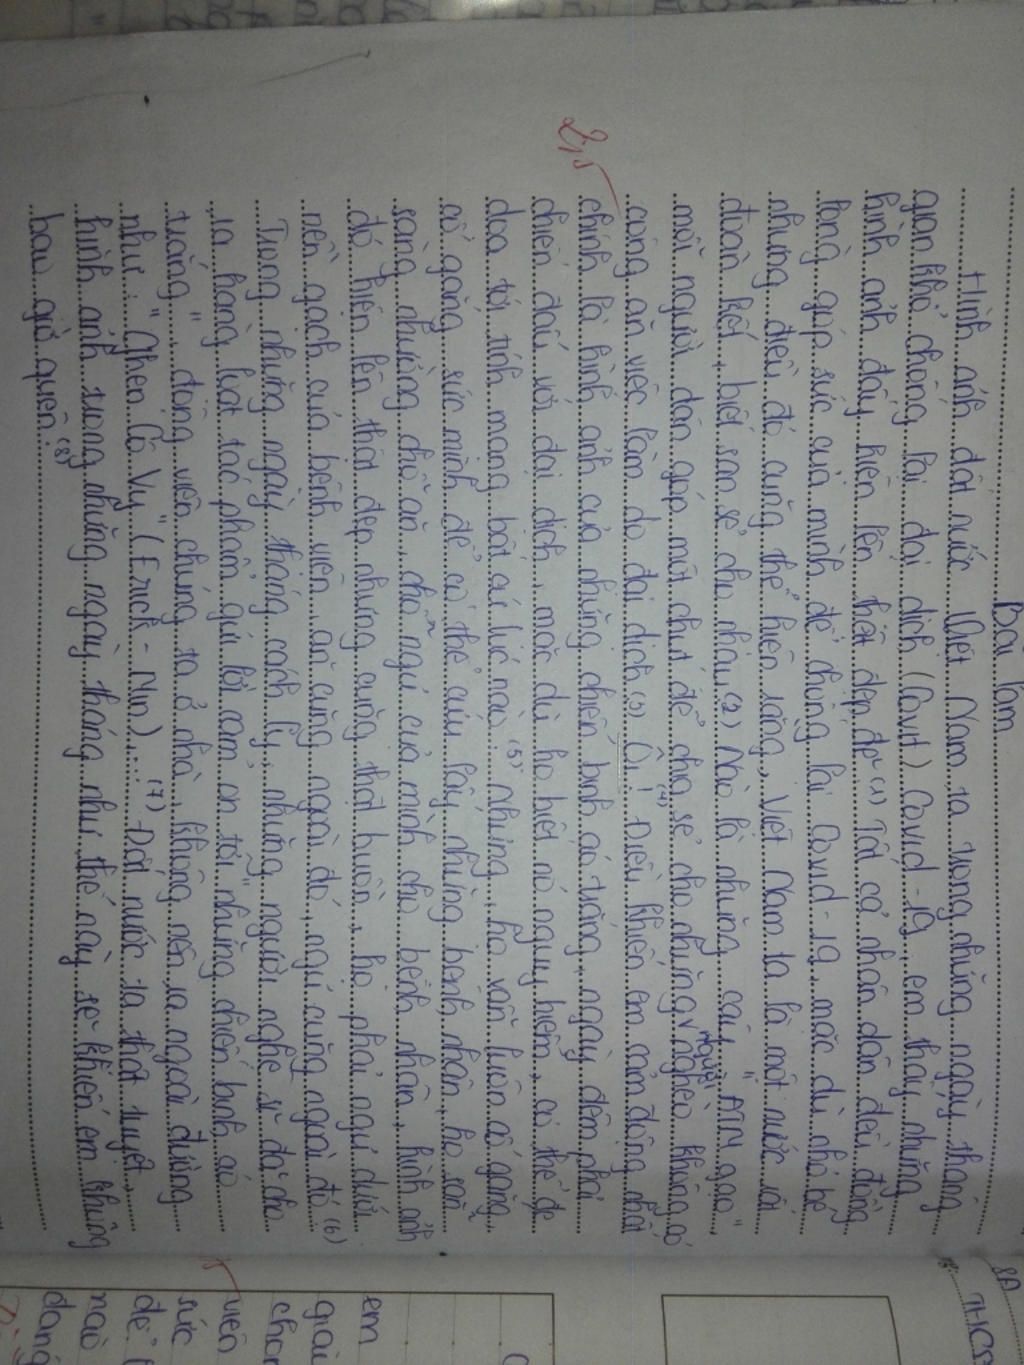 Bài làm
Hình ảnh đất nước Việt Nam ta trong những ngày tháng
gian khổ chống lại đại dịch (Covit) Covid-19, em thấy những
hình ảnh đấy hiện lên thật đẹp đẽ (1) Tất cả nhân dân đều đồng
lòng góp sức của mình để chống lại Covid-19, mặc dù nhỏ bé
nhưng điều đó cũng thể hiện rằng, Việt Nam ta là một nước rất
đoàn kết, biết san sẻ cho nhau (2) Nào là những cây "ATM gạo",
mỗi người dân góp một chút để chia sẻ cho những người nghèo không có
công ăn việc làm do đại dịch (3) Ôi! (4) Điều khiến em cảm động nhất
chính là hình ảnh của những chiến binh áo trắng, ngày đêm phải
chiến đấu với đại dịch, mặc dù họ biết nó nguy hiểm, có thể đe
doạ tới tính mạng bất cứ lúc nào. (5) Nhưng, họ vẫn luôn cố gắng,
cố gắng sức mình để có thể cứu lấy những bệnh nhân, họ sẵn
sàng nhường chỗ ăn, chỗ ngủ của mình cho bệnh nhân, hình ảnh
đó hiện lên thật đẹp nhưng cũng thật buồn, họ phải ngủ dưới
nền gạch của bệnh viện, ăn cũng ngoài đó, ngủ cũng ngoài đó. (6)
Trong những ngày tháng cách ly, những người nghệ sĩ đã cho
ra hàng loạt tác phẩm gửi lời cảm ơn tới "những chiến binh áo
trắng", động viên chúng ta ở nhà, không nên ra ngoài đường
như: "Ghen Cô Vy" (Erick - Min),... (7) Đất nước ta thật tuyệt,
hình ảnh trong những ngày tháng như thế này sẽ khiến em không
bao giờ quên. (8)
2,5
8A
THCS
em
giải
viên
sức
nào